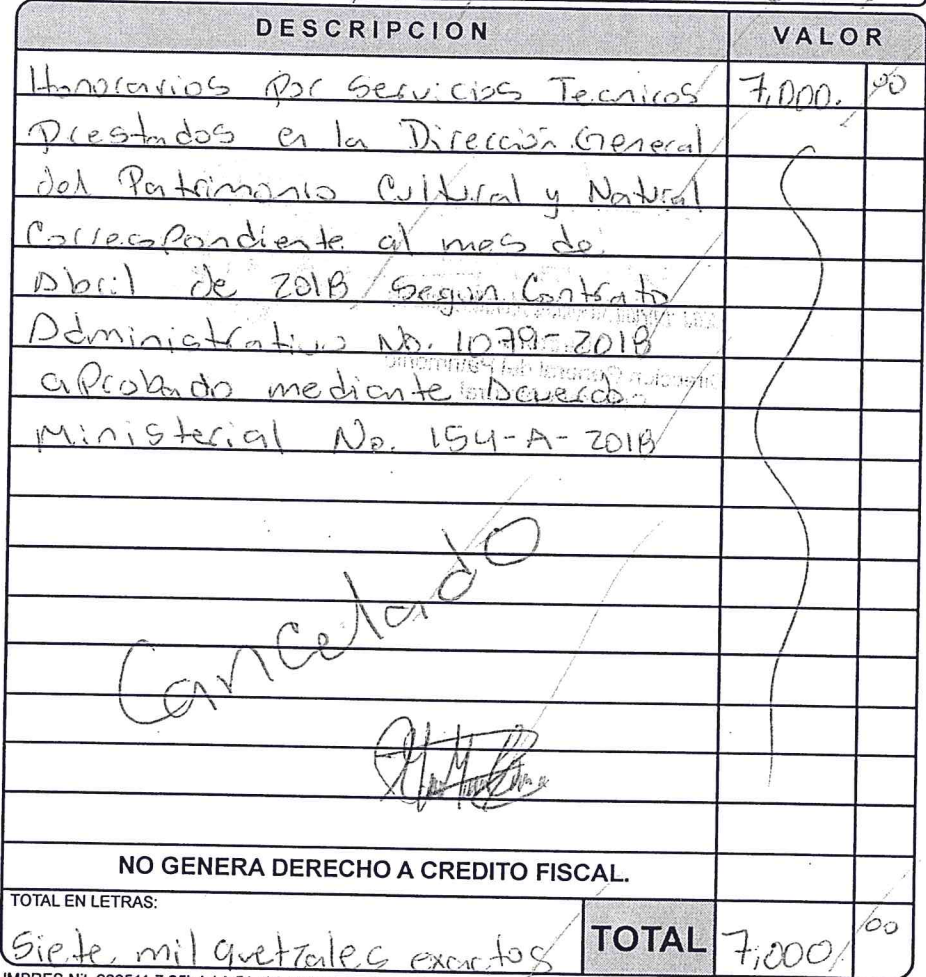 DESCRIPCION VALOR
Honorarios Por Servicios Tecnicos 7,000. 00
Prestados en la Dirección General
del Patrimonio Cultural y Natural
Correspondiente al mes de
Abril de 2018 Segun Contrato
Administrativo No. 1079-2018
aprobado mediante Acuerdo
Ministerial No. 154-A-2018
Cancelado
NO GENERA DERECHO A CREDITO FISCAL.
TOTAL EN LETRAS:
Siete mil quetzales exactos TOTAL 7,000 00